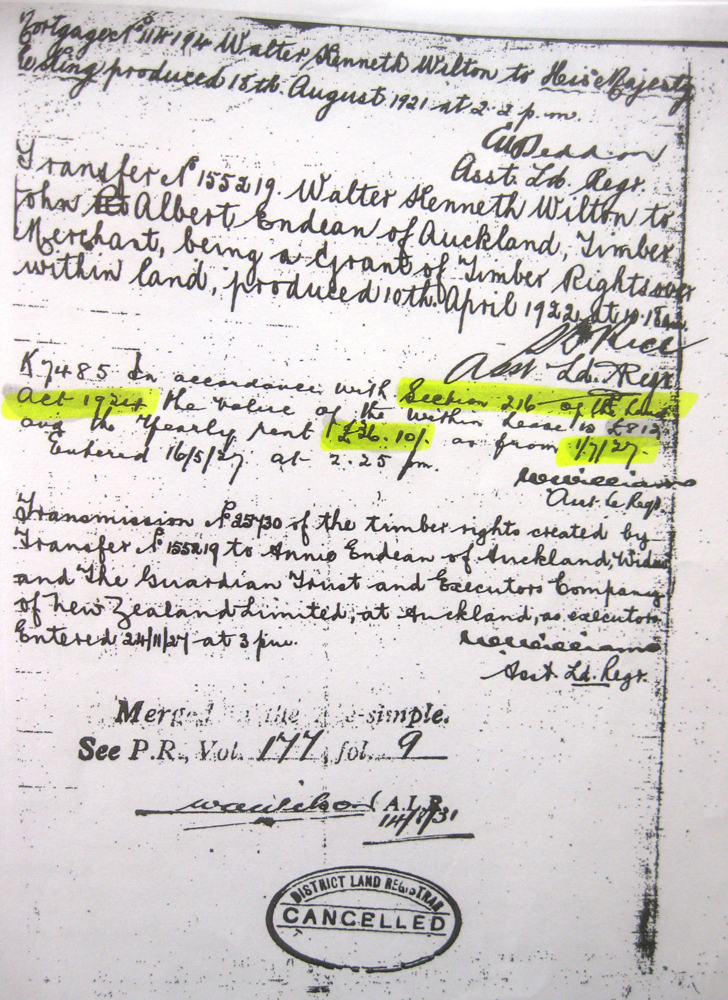 Mortgage No 114194 Walter Kenneth Wilton to His Majesty
the King produced 18th. August 1921 at 2.2 p.m.
Asst. Ld. Regr.
Transfer No 155219. Walter Kenneth Wilton to
John Albert Endean of Auckland, Timber
Merchant, being a Grant of Timber Rights over
within land, produced 10th. April 1922 at 10.18 am.
Asst Ld. Regr
K7485 In accordance with Section 216 of the Land
Act 1924 the value of the within Lease is £812
and the yearly rent £36.10/- as from 1/7/27.
Entered 16/5/27 at 2.25 pm.
Asst L Regr.
Transmission No 25730 of the timber rights created by
Transfer No 155219 to Annie Endean of Auckland, Widow
and The Guardian Trust and Executors Company
of New Zealand Limited, at Auckland, as executors
Entered 24/11/27 at 3 pm.
Asst. Ld. Regr.
Merged in the fee-simple.
See P.R., Vol. 177, fol. 9
A.L.R.
14/8/31
DISTRICT LAND REGISTRAR
CANCELLED